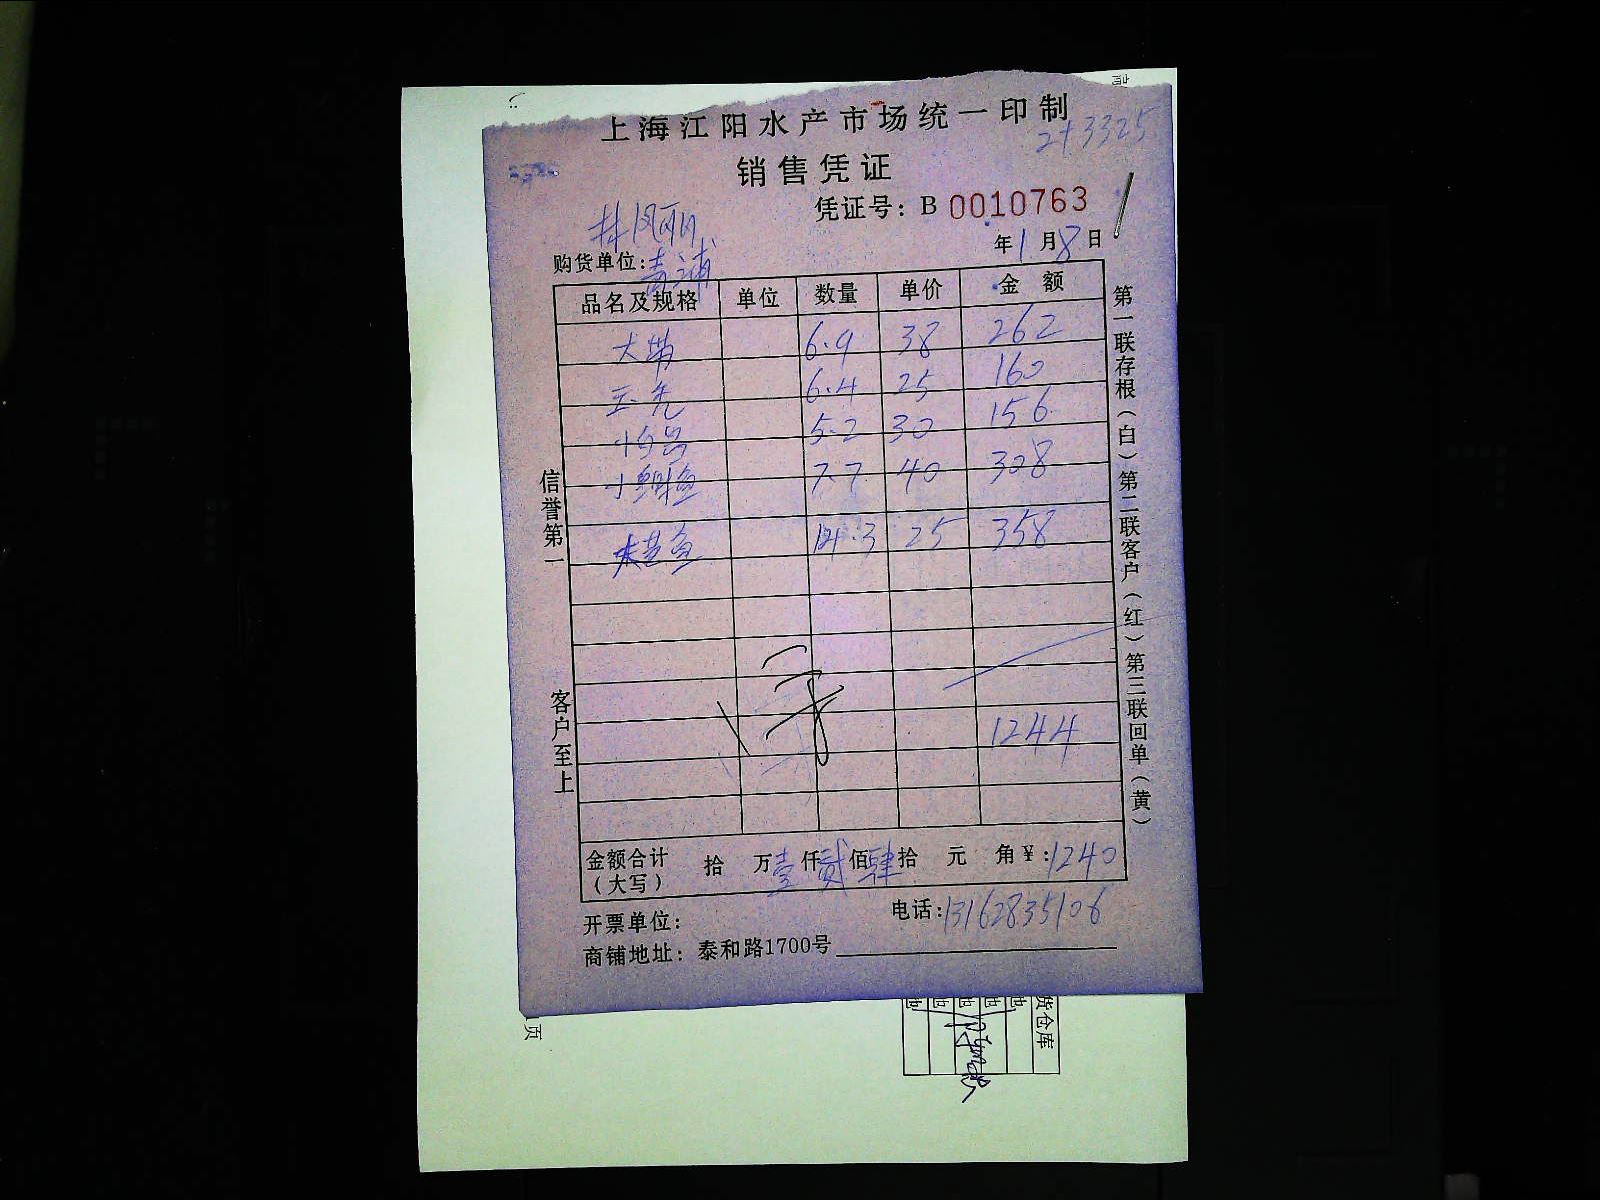 上海江阳水产市场统一印制
2+3325
销售凭证
凭证号：B 0010763
年1月8日
购货单位：青浦
品名及规格 单位 数量 单价 金额
大带 6.9 38 262
6.4 25 160
5.2 30 156
小鲷鱼 7.7 40 308
14.3 25 358
1244
金额合计（大写） 拾 万壹仟贰佰肆拾 元 角¥：1240
开票单位：
电话：13162835106
商铺地址：泰和路1700号
信誉第一
客户至上
第一联存根（白）第二联客户（红）第三联回单（黄）
页
货仓库